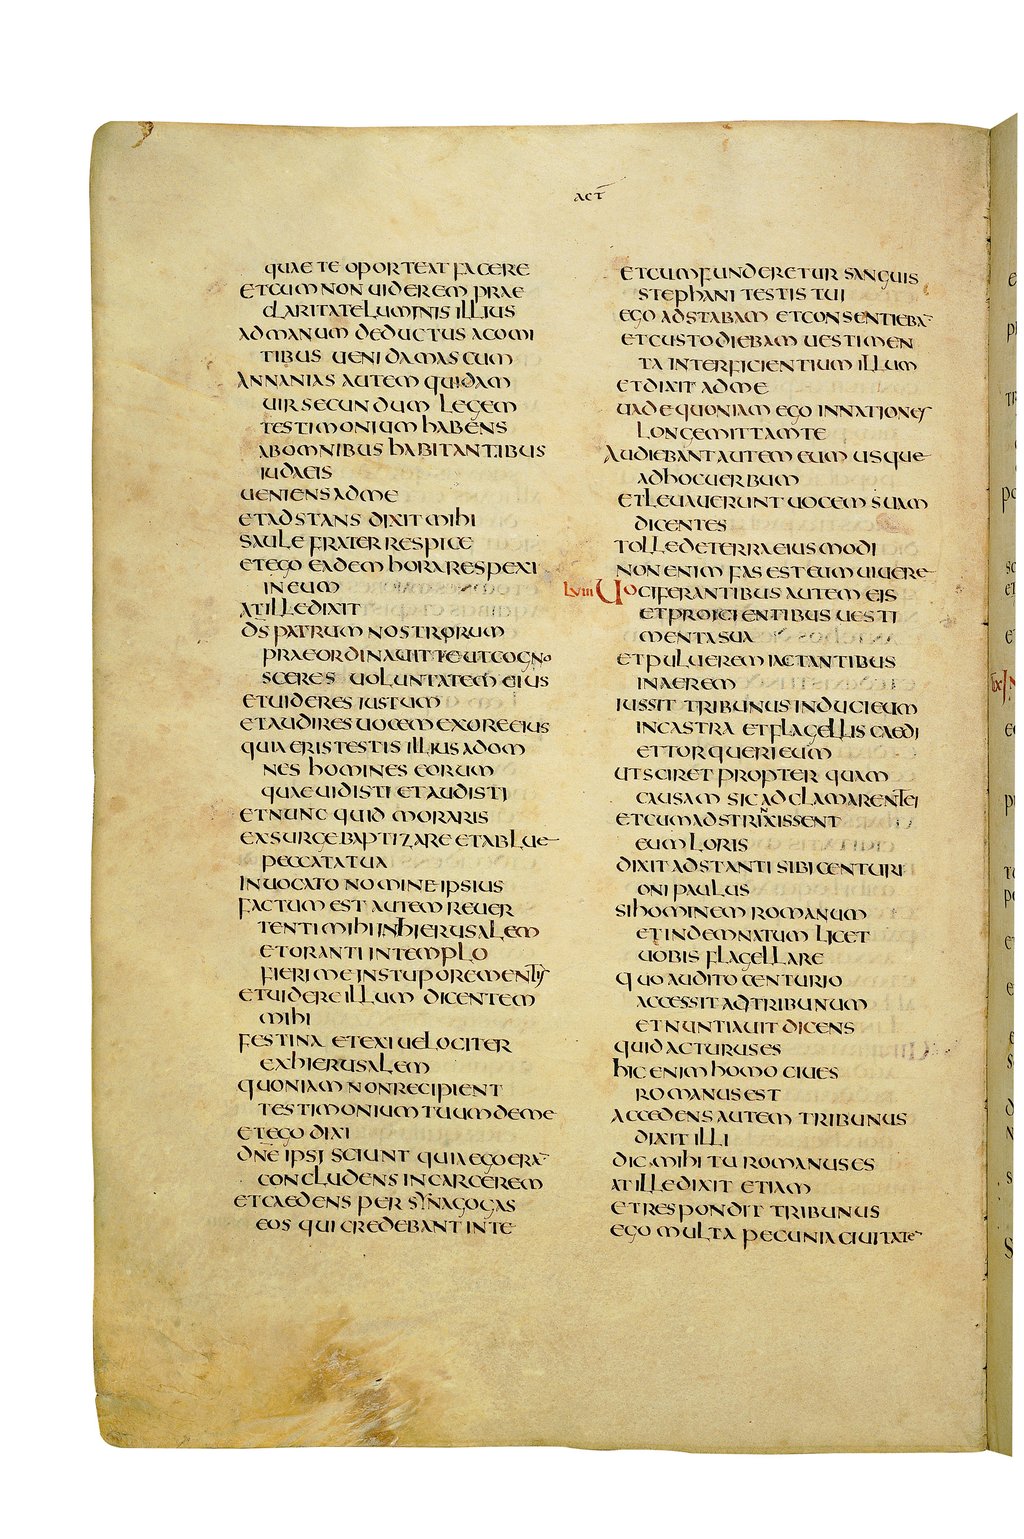 ACT̄
QUAE TE OPORTEAT FACERE
ET CUM NON UIDEREM PRAE
CLARITATE LUMINIS ILLIUS
AD MANUM DEDUCTUS A COMI
TIBUS UENI DAMASCUM
ANNANIAS AUTEM QUIDAM
UIR SECUNDUM LEGEM
TESTIMONIUM HABENS
AB OMNIBUS HABITANTIBUS
IUDAEIS
UENIENS AD ME
ET ADSTANS DIXIT MIHI
SAULE FRATER RESPICE
ET EGO EADEM HORA RESPEXI
IN EUM
AT ILLE DIXIT
D̄S PATRUM NOSTRORUM
PRAEORDINAUIT TE UT COGNO
SCERES UOLUNTATEM EIUS
ET UIDERES IUSTUM
ET AUDIRES UOCEM EX ORE EIUS
QUIA ERIS TESTIS ILLIUS AD OM
NES HOMINES EORUM
QUAE UIDISTI ET AUDISTI
ET NUNC QUID MORARIS
EXSURGE BAPTIZARE ET ABLUE
PECCATA TUA
INUOCATO NOMINE IPSIUS
FACTUM EST AUTEM REUER
TENTI MIHI IN HIERUSALEM
ET ORANTI IN TEMPLO
FIERI ME IN STUPORE MENTIS
ET UIDERE ILLUM DICENTEM
MIHI
FESTINA ET EXI UELOCITER
EX HIERUSALEM
QUONIAM NON RECIPIENT
TESTIMONIUM TUUM DE ME
ET EGO DIXI
D̄NE IPSI SCIUNT QUIA EGO ERA¯
CONCLUDENS IN CARCEREM
ET CAEDENS PER SYNAGOGAS
EOS QUI CREDEBANT IN TE
ET CUM FUNDERETUR SANGUIS
STEPHANI TESTIS TUI
EGO ADSTABAM ET CONSENTIEBA¯
ET CUSTODIEBAM UESTIMEN
TA INTERFICIENTIUM ILLUM
ET DIXIT AD ME
UADE QUONIAM EGO IN NATIONES
LONGE MITTAM TE
AUDIEBANT AUTEM EUM USQUE
AD HOC UERBUM
ET LEUAUERUNT UOCEM SUAM
DICENTES
TOLLE DE TERRA EIUSMODI
NON ENIM FAS EST EUM UIUERE
LVIII UOCIFERANTIBUS AUTEM EIS
ET PROICIENTIBUS UESTI
MENTA SUA
ET PULUEREM IACTANTIBUS
IN AEREM
IUSSIT TRIBUNUS INDUCI EUM
IN CASTRA ET FLAGELLIS CAEDI
ET TORQUERI EUM
UT SCIRET PROPTER QUAM
CAUSAM SIC ADCLAMARENT EI
ET CUM ADSTRINXISSENT
EUM LORIS
DIXIT ADSTANTI SIBI CENTURI
ONI PAULUS
SI HOMINEM ROMANUM
ET INDEMNATUM LICET
UOBIS FLAGELLARE
QUO AUDITO CENTURIO
ACCESSIT AD TRIBUNUM
ET NUNTIAUIT DICENS
QUID ACTURUS ES
HIC ENIM HOMO CIUES
ROMANUS EST
ACCEDENS AUTEM TRIBUNUS
DIXIT ILLI
DIC MIHI TU ROMANUS ES
AT ILLE DIXIT ETIAM
ET RESPONDIT TRIBUNUS
EGO MULTA PECUNIA CIUITATE¯